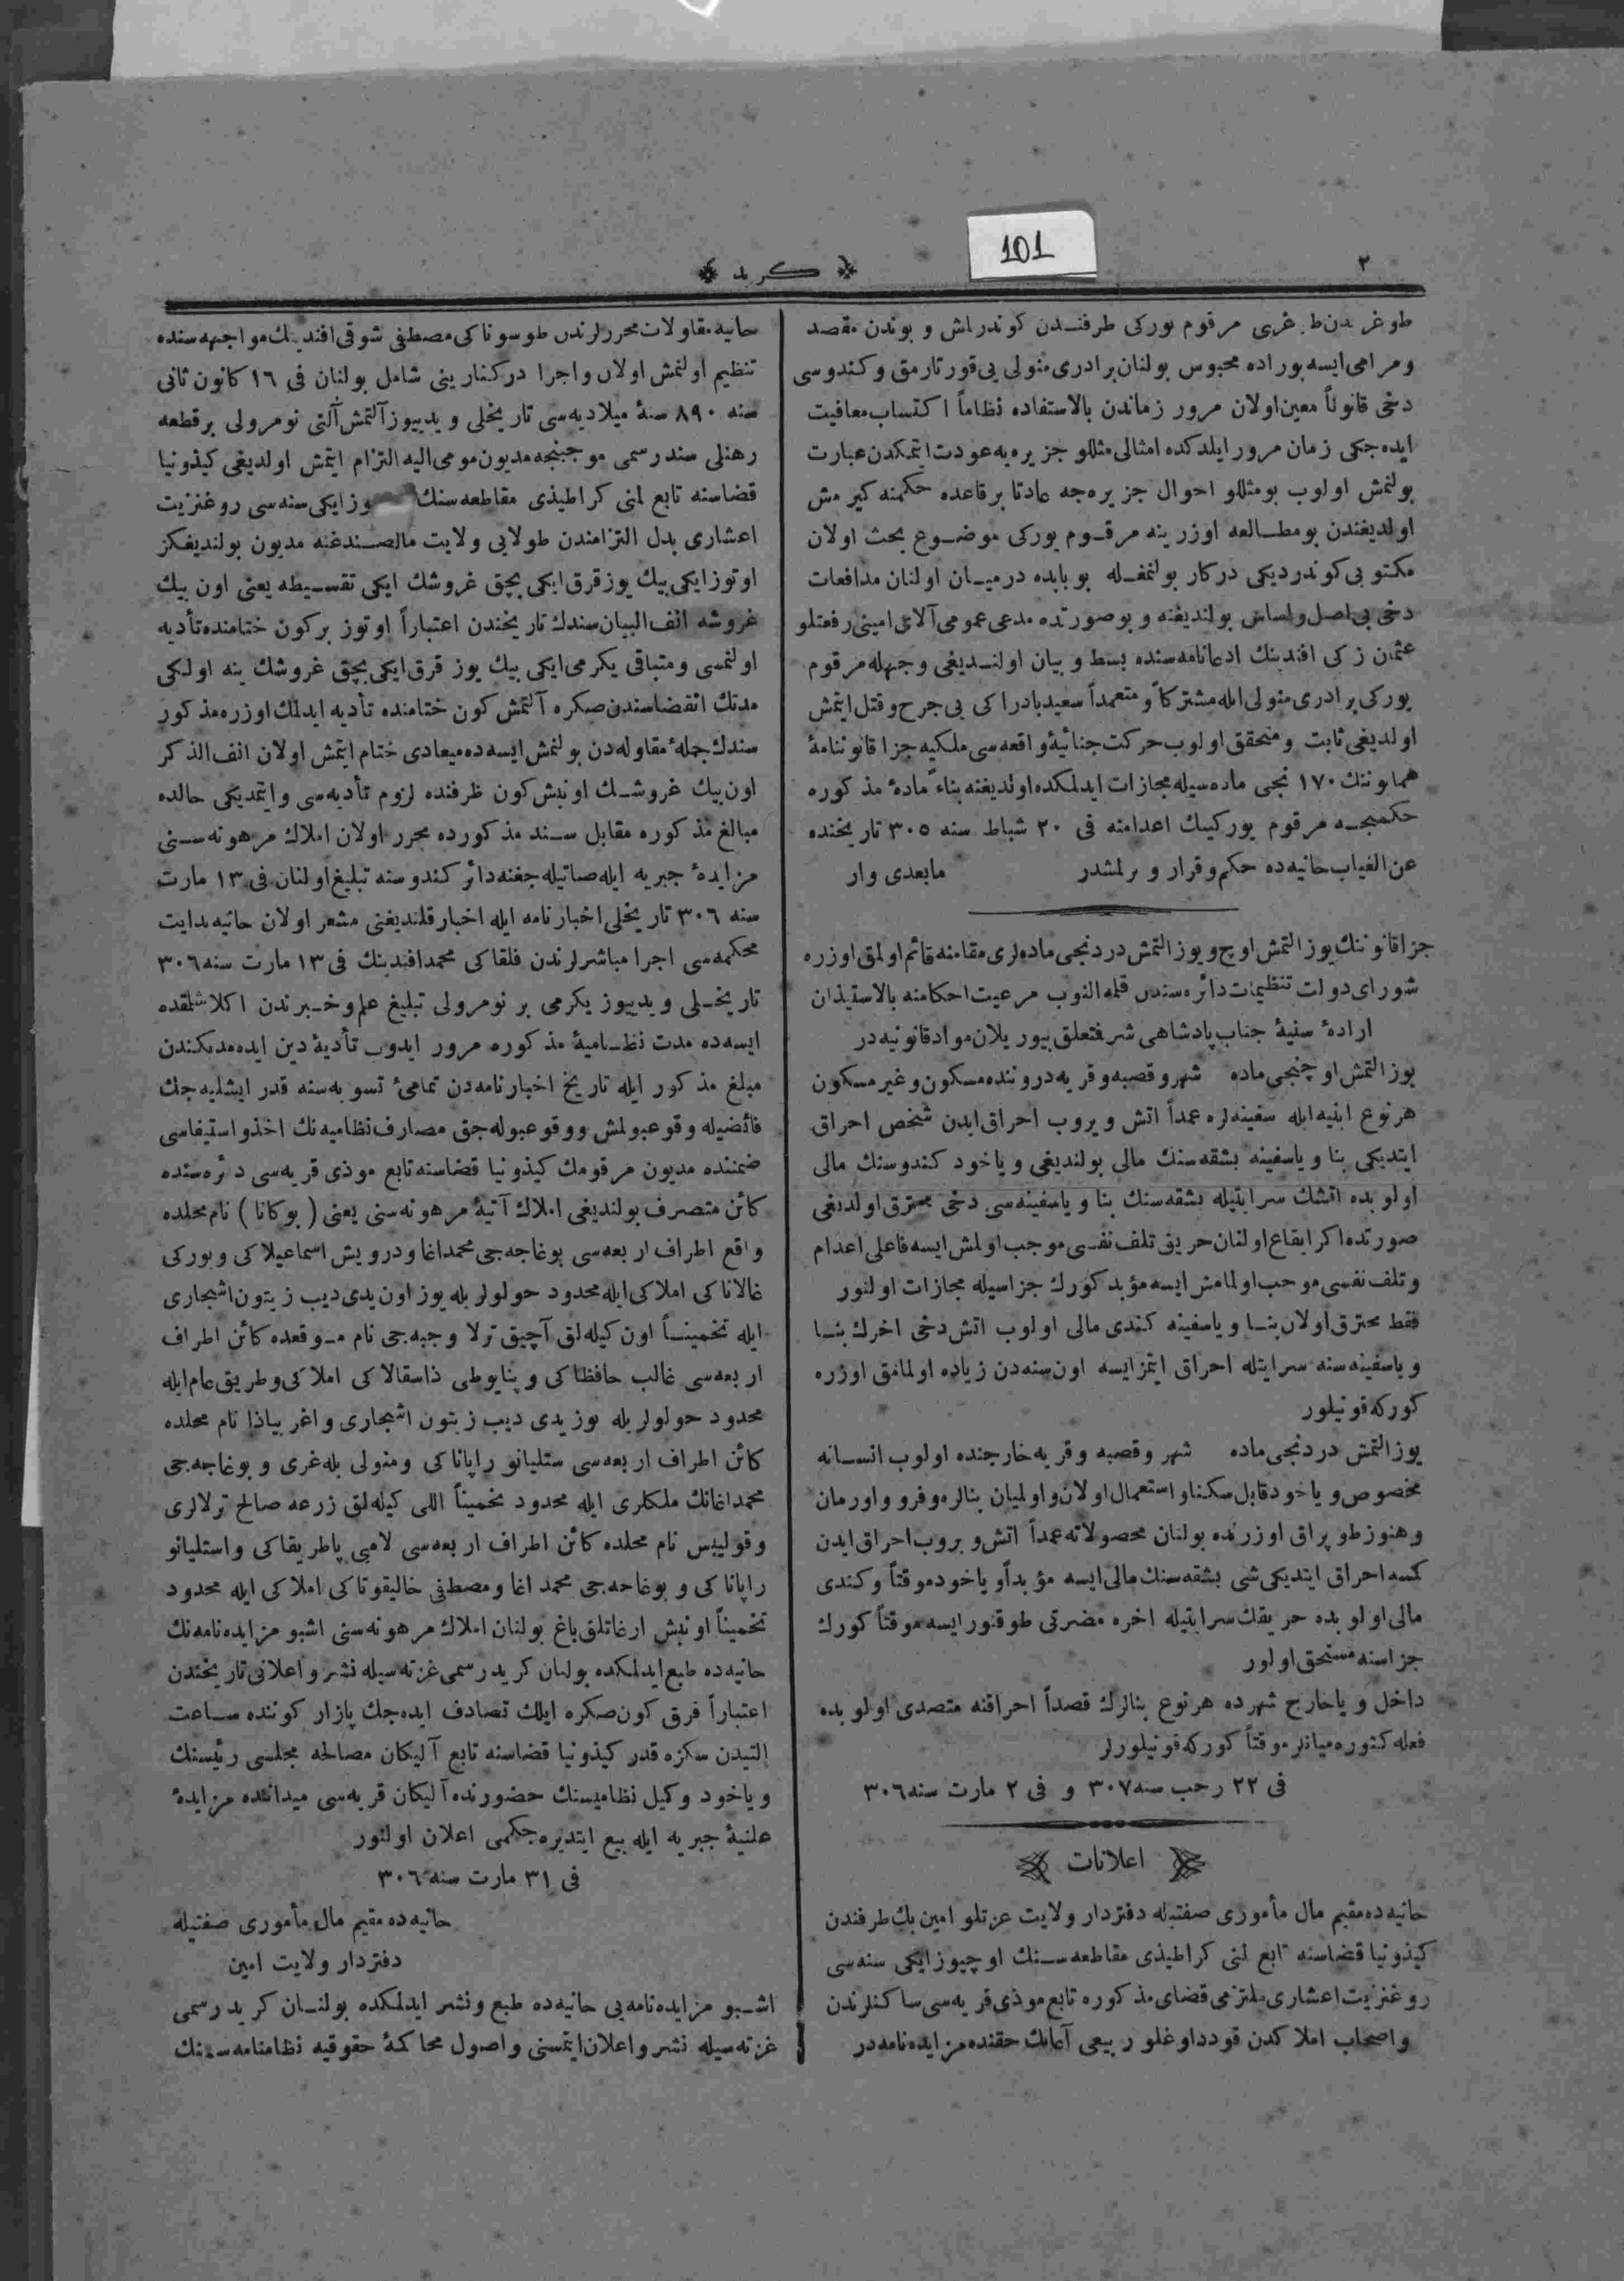 ٢
101
﴿ كريد ﴾
طوغريدن طوغرى مرقوم يوركى طرفندن كوندرلمش و بوندن مقصد
ومرامى ايسه بوراده محبوس بولنان برادرى منولى يى قورتارمق وكندوسى
دخى قانوناً معين اولان مرور زماندن بالاستفاده نظاماً اكتساب معافيت
ايده‌جكى زمان مرور ايلدكده امثالى مثللو جزيره‌يه عودت ايتمكدن عبارت
بولنمش اولوب بو مثللو احوال جزيره‌جه عادتا بر قاعده حكمنه كيرمش
اولديغندن بو مطالعه اوزرينه مرقوم يوركى موضوع بحث اولان
مكتوبى كوندرديكى دركار بولنمغله بوبابده درميان اولنان مدافعات
دخى بى اصل واساس بولنديغنه و بو صورتده مدعى عمومى آلاى امينى رفعتلو
عثمان زكى افندينك ادعانامه‌سنده بسط و بيان اولنديغى وجهله مرقوم
يوركى برادرى منولى ايله مشتركاً و متعمداً سعيد بادراكى يى جرح و قتل ايتمش
اولديغى ثابت ومتحقق اولوب حركت جنائيهٔ واقعه‌سى ملكيه جزا قانوننامهٔ
همايوننك ١٧٠ نجى ماده‌سيله مجازات ايدلمكده اولديغنه بناءً مادهٔ مذكوره
حكمنجه مرقوم يوركينك اعدامنه فى ٢٠ شباط سنه ٣٠٥ تاريخنده
عن الغياب حانيه‌ده حكم وقرار ويرلمشدر مابعدى وار
جزا قانوننك يوز التمش اوچ و يوز التمش دردنجى ماده‌لرى مقامنه قائم اولمق اوزره
شوراى دولت تنظيمات دائره‌سندن قلمه النوب مرعيت احكامنه بالاستيذان
ارادهٔ سنيهٔ جناب پادشاهى شرفتعلق بيوريلان مواد قانونيه‌در
يوز التمش اوچنجى ماده شهر و قصبه وقريه دروننده مسكون وغير مسكون
هر نوع ابنيه ايله سفينه‌لره عمداً اتش ويروب احراق ايدن شخص احراق
ايتديكى بنا وياسفينه بشقه‌سنك مالى بولنديغى وياخود كندوسنك مالى
اولوبده اتشك سرايتيله بشقه‌سنك بنا وياسفينه‌سى دخى محترق اولديغى
صورتده اكر ايقاع اولنان حريق تلف نفسى موجب اولمش ايسه فاعلى اعدام
وتلف نفسى موجب اولمامش ايسه مؤبد كورك جزاسيله مجازات اولنور
فقط محترق اولان بنا وياسفينه كندى مالى اولوب اتش دخى اخرك بنا
وياسفينه‌سنه سرايتله احراق ايتمز ايسه اون سنه‌دن زياده اولمامق اوزره
كوركه قونيلور
يوز التمش دردنجى ماده شهر وقصبه وقريه خارجنده اولوب انسانه
مخصوص وياخود قابل سكنا و استعمال اولان و اولميان بنالره وقرو و اورمان
وهنوز طوپراق اوزرنده بولنان محصولاته عمداً اتش ويروب احراق ايدن
كمسه احراق ايتديكى شى بشقه‌سنك مالى ايسه مؤبداً وياخود موقتاً وكندى
مالى اولوبده حريقك سرايتيله اخره مضرتى طوقنور ايسه موقتاً كورك
جزاسنه مستحق اولور
داخل وياخارج شهرده هر نوع بنالرك قصداً احراقنه متصدى اولوبده
فعله كتوره‌ميانلر موقتاً كوركه قونيلورلر
فى ٢٢ رجب سنه ٣٠٧ و فى ٢ مارت سنه ٣٠٦
اعلانات
حانيه‌ده مقيم مال مأمورى صفتيله دفتردار ولايت عزتلو امين بك طرفندن
كيذونيا قضاسنه تابع لنى كراطيذى مقاطعه‌سنك اوچيوز ايكى سنه‌سى
روغنزيت اعشارى ملتزمى قضاى مذكوره تابع موذى قريه‌سى ساكنلرندن
واصحاب املاكدن قودد اوغلو ربيعى آغانك حقنده مزايده‌نامه‌در
حانيه مقاولات محررلرندن طوسوناكى مصطفى شوقى افندينك مواجهه‌سنده
تنظيم اولنمش اولان واجرا دركنارينى شامل بولنان فى ١٦ كانون ثانى
سنه ٨٩٠ سنهٔ ميلاديه‌سى تاريخلى و يديوز آلتمش آلتى نومرولى بر قطعه
رهنلى سند رسمى موجبنجه مديون مومى اليه التزام ايتمش اولديغى كيذونيا
قضاسنه تابع لنى كراطيذى مقاطعه‌سنك وز ايكى سنه‌سى روغنزيت
اعشارى بدل التزامندن طولايى ولايت مالصندغنه مديون بولنديغكز
اوتوز ايكى بيك يوز قرق ايكى بچق غروشك ايكى تقسيطه يعنى اون بيك
غروشه انف البيان سندك تاريخندن اعتباراً اوتوز بر كون ختامنده تأديه
اولنمسى ومتباقى يكرمى ايكى بيك يوز قرق ايكى بچق غروشك ينه اولكى
مدتك انقضاسندن صكره آلتمش كون ختامنده تأديه ايدلمك اوزره مذكور
سندك جملهٔ مقاوله‌دن بولنمش ايسه‌ده ميعادى ختام ايتمش اولان انف الذكر
اون بيك غروشك اون بش كون ظرفنده لزوم تأديه‌سى وايتمديكى حالده
مبالغ مذكوره مقابل سند مذكورده محرر اولان املاك مرهونه‌سنى
مزايدهٔ جبريه ايله صاتيله‌جغنه دائر كندوسنه تبليغ اولنان فى ١٣ مارت
سنه ٣٠٦ تاريخلى اخبارنامه ايله اخبار قلنديغنى مشعر اولان حانيه بدايت
محكمه‌سى اجرا مباشرلرندن فلقاكى محمد افندينك فى ١٣ مارت سنه ٣٠٦
تاريخلى و يديوز يكرمى بر نومرولى تبليغ علم وخبرندن اكلاشلمقده
ايسه‌ده مدت نظاميهٔ مذكوره مرور ايدوب تأديهٔ دين ايده‌مديكندن
مبلغ مذكور ايله تاريخ اخبارنامه‌دن تمامىٔ تسويه‌سنه قدر ايشليه‌جك
فائضيله وقوعبولمش و وقوعبوله‌جق مصارف نظاميه‌نك اخذ و استيفاسى
ضمننده مديون مرقومك كيذونيا قضاسنه تابع موذى قريه‌سى دائره‌سنده
كائن متصرف بولنديغى املاك آتيهٔ مرهونه‌سنى يعنى (بوكانا) نام محلده
واقع اطراف اربعه‌سى پوغاجه‌جى محمد اغا و درويش اسماعيلاكى و يوركى
غالاناكى املاكى ايله محدود حولولريله يوز اون يدى ديب زيتون اشجارى
ايله تخميناً اون كيله‌لق آچيق ترلا و جبه‌جى نام موقعده كائن اطراف
اربعه‌سى غالب حافظاكى و پنايوطى ذاسقالاكى املاكى وطريق عام ايله
محدود حولولريله يوز يدى ديب زيتون اشجارى واغربياذا نام محلده
كائن اطراف اربعه‌سى ستليانو راپاناكى ومنولى بله‌غرى و بوغاجه‌جى
محمد اغانك ملكلرى ايله محدود تخميناً اللى كيله‌لق زرعه صالح ترلالرى
وقوليبس نام محلده كائن اطراف اربعه‌سى لامبى پاطريقاكى واستليانو
راپاناكى و بوغاجه‌جى محمد اغا ومصطفى خاليقوتاكى املاكى ايله محدود
تخميناً اونبش ارغاتلق باغ بولنان املاك مرهونه‌سنى اشبو مزايده‌نامه‌نك
حانيه‌ده طبع ايدلمكده بولنان كريد رسمى غزته‌سيله نشر و اعلانى تاريخندن
اعتباراً قرق كون صكره ايلك تصادف ايده‌جك پازار كوننده ساعت
التيدن سكزه قدر كيذونيا قضاسنه تابع آليكان مصالحه مجلسى رئيسنك
وياخود وكيل نظاميسنك حضورنده آليكان قريه‌سى ميداننده مزايدهٔ
علنيهٔ جبريه ايله بيع ايتديره‌جكمى اعلان اولنور
فى ٣١ مارت سنه ٣٠٦
حانيه‌ده مقيم مال مأمورى صفتيله
دفتردار ولايت امين
اشبو مزايده‌نامه‌يى حانيه‌ده طبع ونشر ايدلمكده بولنان كريد رسمى
غزته‌سيله نشر واعلان ايتمسنى واصول محاكمهٔ حقوقيه نظامنامه‌سنك